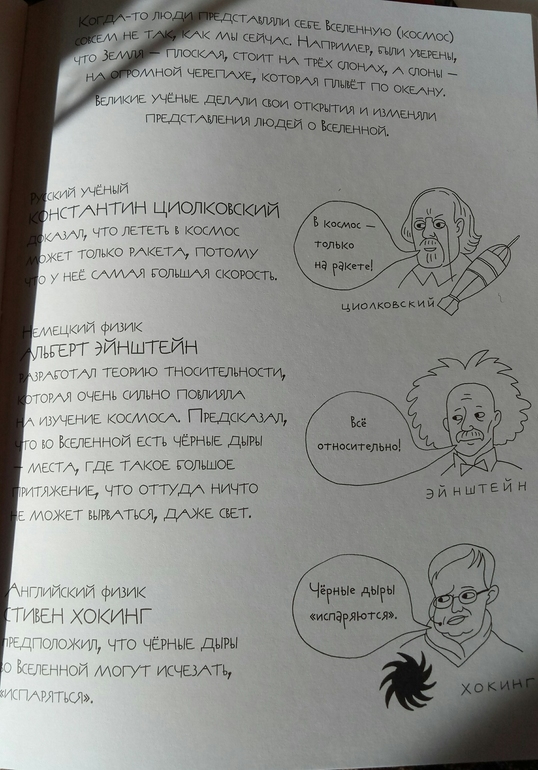 Когда-то люди представляли себе Вселенную (космос)
совсем не так, как мы сейчас. Например, были уверены,
что Земля — плоская, стоит на трёх слонах, а слоны —
на огромной черепахе, которая плывёт по океану.
Великие учёные делали свои открытия и изменяли
представления людей о Вселенной.
Русский учёный
КОНСТАНТИН ЦИОЛКОВСКИЙ
доказал, что лететь в космос
может только ракета, потому
что у неё самая большая скорость.
В космос —
только
на ракете!
ЦИОЛКОВСКИЙ
Немецкий физик
АЛЬБЕРТ ЭЙНШТЕЙН
разработал теорию тносительности,
которая очень сильно повлияла
на изучение космоса. Предсказал,
что во Вселенной есть чёрные дыры
— места, где такое большое
притяжение, что оттуда ничто
не может вырваться, даже свет.
Всё
относительно!
ЭЙНШТЕЙН
Английский физик
СТИВЕН ХОКИНГ
предположил, что чёрные дыры
во Вселенной могут исчезать,
«испаряться».
Чёрные дыры
«испаряются».
ХОКИНГ